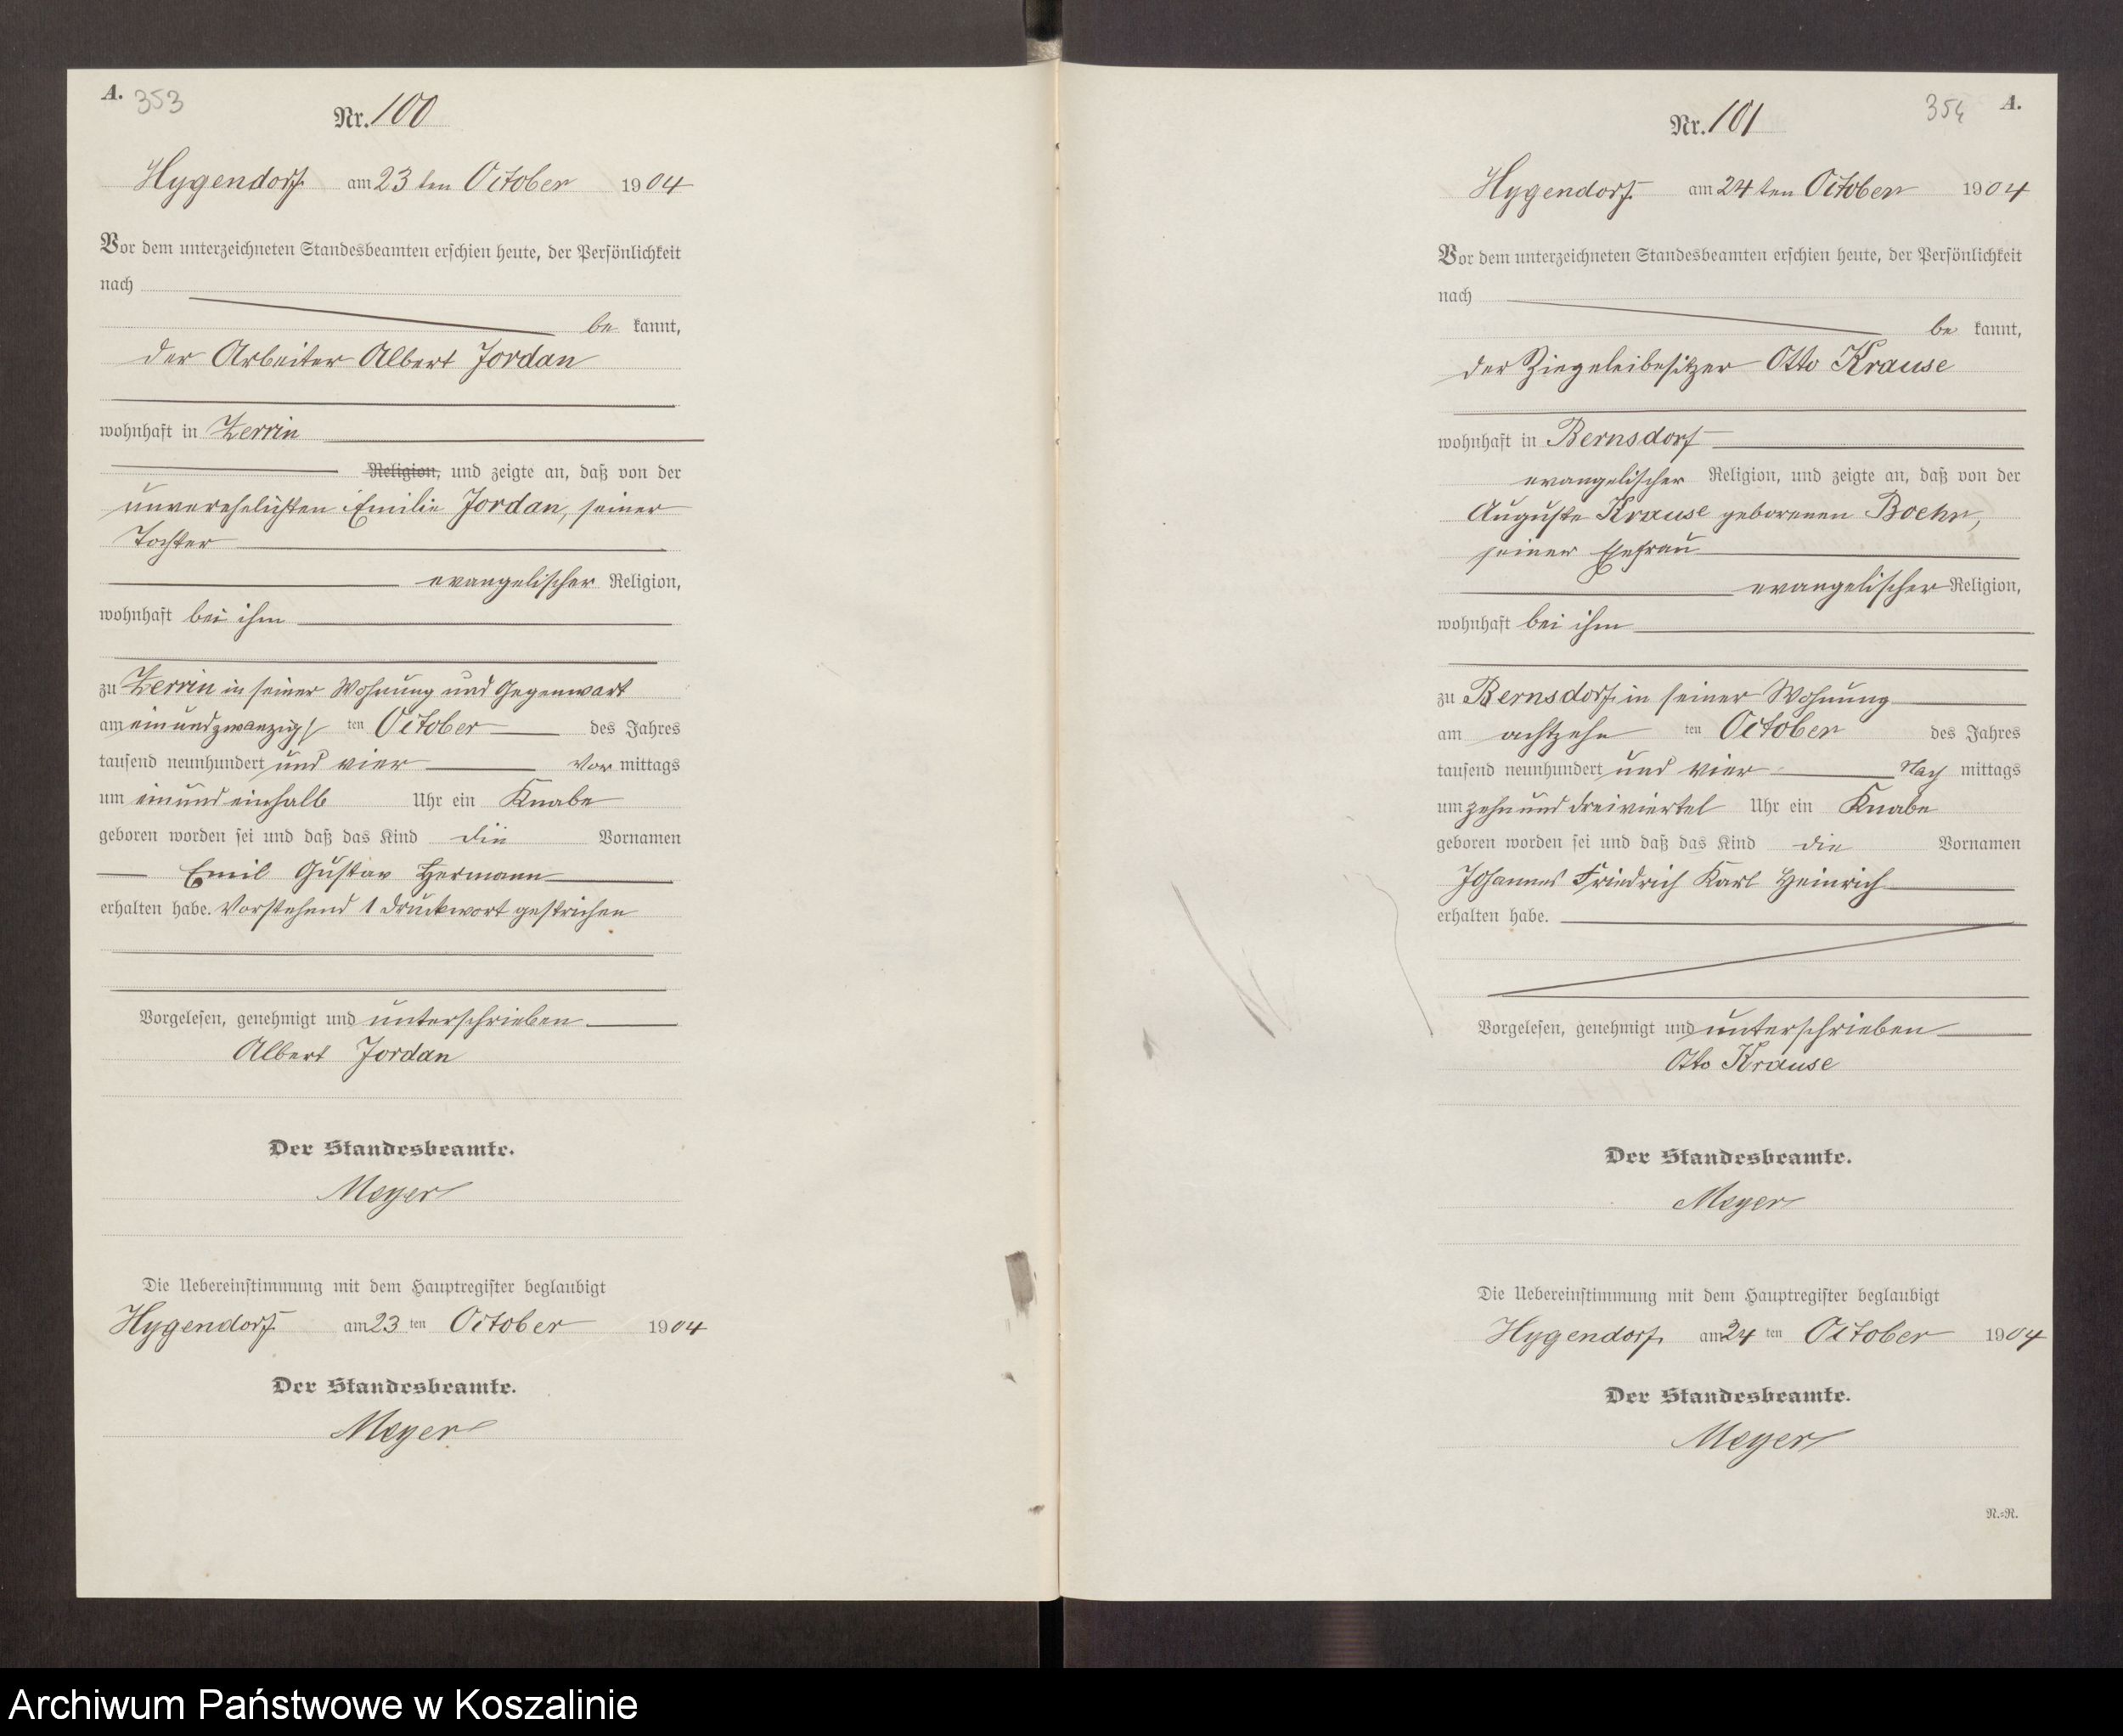 A. 353
Nr. 100
Hygendorf am 23 ten October 1904
Vor dem unterzeichneten Standesbeamten erschien heute, der Persönlichkeit
nach
be kannt,
der Arbeiter Albert Jordan
wohnhaft in Zerrin
Religion, und zeigte an, daß von der
unverehelichten Emilie Jordan, seiner
Tochter
evangelischer Religion,
wohnhaft bei ihm
zu Zerrin in seiner Wohnung und Gegenwart
am einundzwanzigs ten October des Jahres
tausend neunhundert und vier Vor mittags
um einundeinhalb Uhr ein Knabe
geboren worden sei und daß das Kind die Vornamen
Emil Gustav Hermann
erhalten habe. Vorstehend 1 Druckwort gestrichen
Vorgelesen, genehmigt und unterschrieben
Albert Jordan
Der Standesbeamte.
Meyer
Die Uebereinstimmung mit dem Hauptregister beglaubigt
Hygendorf am 23 ten October 1904
Der Standesbeamte.
Meyer
354 A.
Nr. 101
Hygendorf am 24 ten October 1904
Vor dem unterzeichneten Standesbeamten erschien heute, der Persönlichkeit
nach
be kannt,
der Ziegeleibesitzer Otto Krause
wohnhaft in Bernsdorf
evangelischer Religion, und zeigte an, daß von der
Auguste Krause geborenen Boehr,
seiner Ehefrau
evangelischer Religion,
wohnhaft bei ihm
zu Bernsdorf in seiner Wohnung
am achtzehn ten October des Jahres
tausend neunhundert und vier Nach mittags
um zehnunddreiviertel Uhr ein Knabe
geboren worden sei und daß das Kind die Vornamen
Johannes Friedrich Karl Heinrich
erhalten habe.
Vorgelesen, genehmigt und unterschrieben
Otto Krause
Der Standesbeamte.
Meyer
Die Uebereinstimmung mit dem Hauptregister beglaubigt
Hygendorf am 24 ten October 1904
Der Standesbeamte.
Meyer
N.=R.
Archiwum Państwowe w Koszalinie